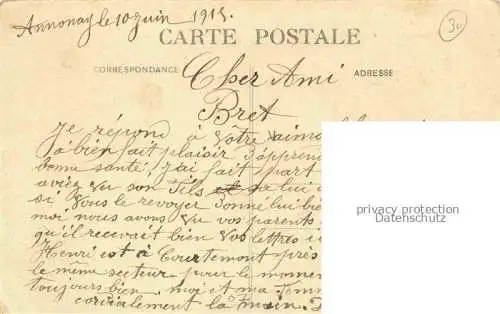 Annonay le 10 juin 1915.
30
CARTE POSTALE
CORRESPONDANCE
ADRESSE
Cher Ami
Bret
Je répond à Votre aima
a bien fait plaisir d'appren
bonne santé, j'ai fait part
aviez Vu son Fils et
si Vous le revoyer Donné lui bien
moi nous avons Vu vos parents
qu'il recevait bien Vos lettres
Henri est à Courtemont près
le même secteur pour le momen
toujours bien moi et ma Femm
cordialement la main.
privacy protection
Datenschutz